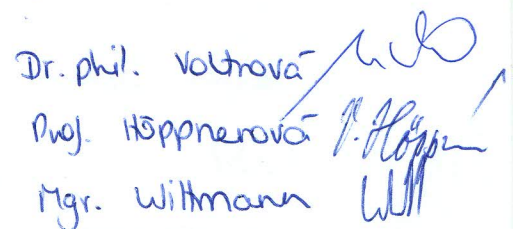 Dr. phil. Voltrová
Prof. Höppnerová V. Höppn
Mgr. Wittmann